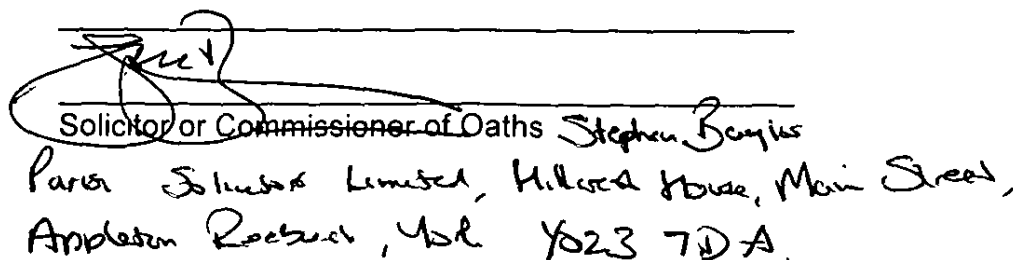 Solicitor or Commissioner of Oaths Stephen
Solicitors Limited, Hillcrest House, Main Street,
Appleton Roebuck, York YO23 7DA.